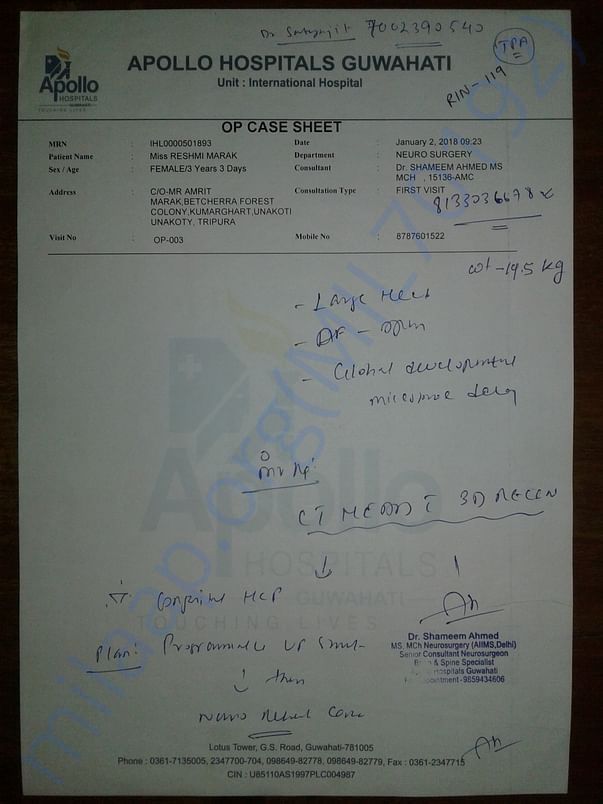 Dr Satyajit 7002390540
TPA
RIN-119
Apollo
HOSPITALS
GUWAHATI
TOUCHING LIVES
APOLLO HOSPITALS GUWAHATI
Unit : International Hospital
OP CASE SHEET
MRN : IHL0000501893 Date : January 2, 2018 09:23
Patient Name : Miss RESHMI MARAK Department : NEURO SURGERY
Sex / Age : FEMALE/3 Years 3 Days Consultant : Dr. SHAMEEM AHMED MS
MCH , 15136-AMC
Address : C/O-MR AMRIT Consultation Type : FIRST VISIT
MARAK,BETCHERRA FOREST
COLONY,KUMARGHART,UNAKOTI
UNAKOTY, TRIPURA
8133036678
Visit No : OP-003 Mobile No : 8787601522
wt - 14.5 kg
- Large Head
- AF - open
- Global development
milestone delay
Adv
CT HEAD 3D RECON
Congenital HCP
Plan: Programmable VP Shunt
then
Neuro Rehab Care
Apollo
HOSPITALS
GUWAHATI
TOUCHING LIVES
Dr. Shameem Ahmed
MS, MCh Neurosurgery (AIIMS,Delhi)
Senior Consultant Neurosurgeon
Brain & Spine Specialist
Hospitals Guwahati
9859434606
Lotus Tower, G.S. Road, Guwahati-781005
Phone : 0361-7135005, 2347700-704, 098649-82778, 098649-82779, Fax : 0361-2347715
CIN : U85110AS1997PLC004987
milaap.org(MIL70192)